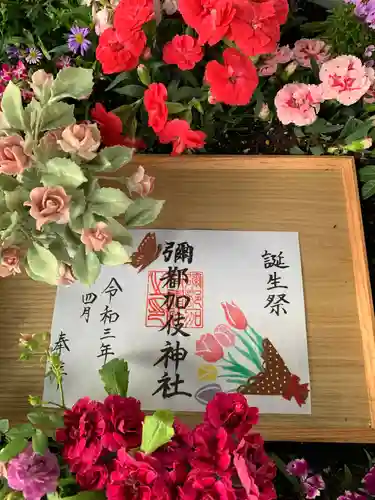 誕生祭
彌都加伎神社
令和三年
四月
奉